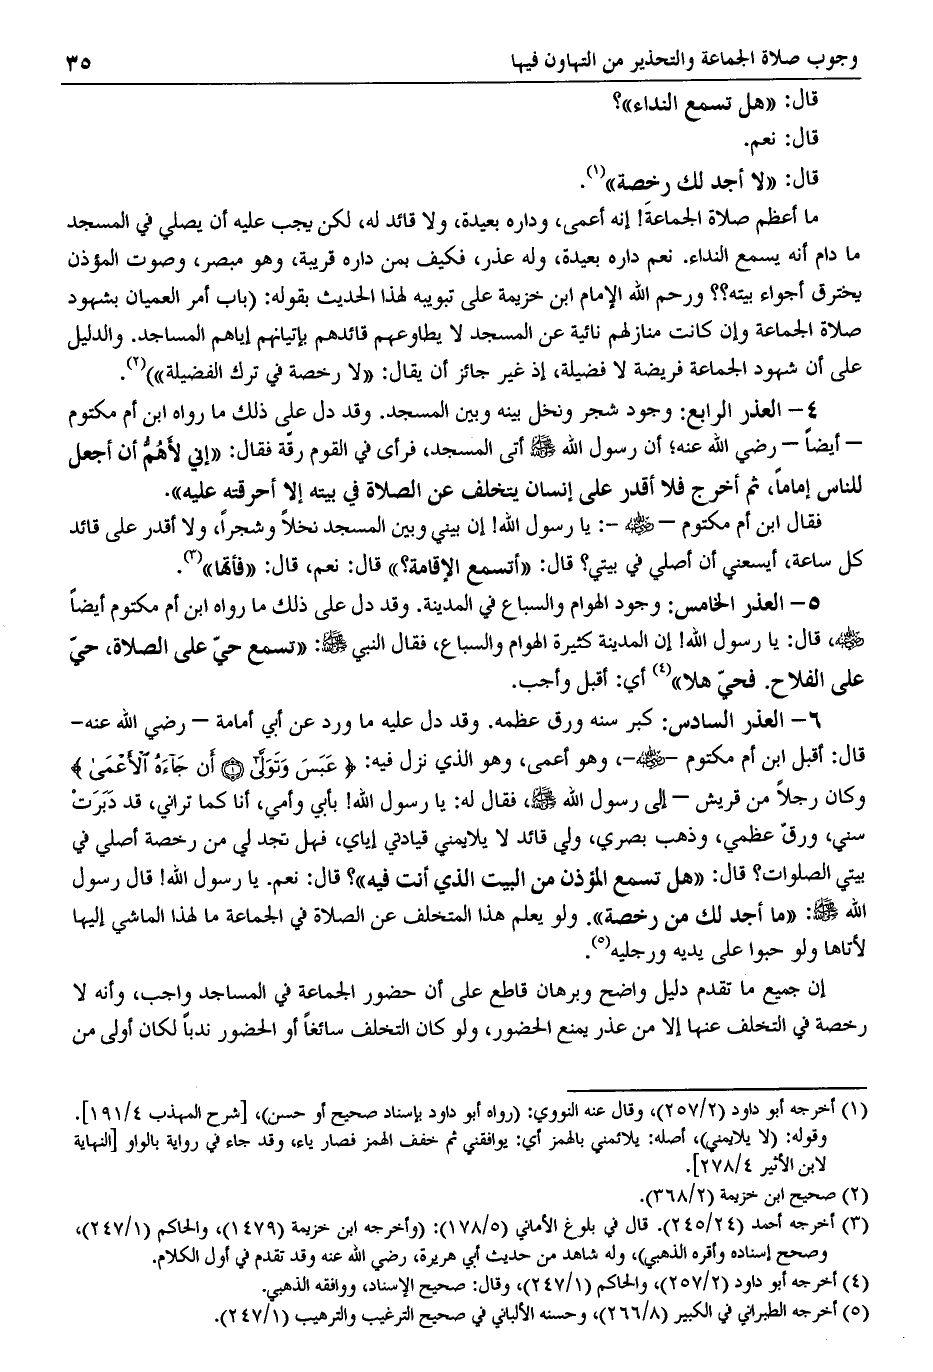 وجوب صلاة الجماعة والتحذير من التهاون فيها ٣٥
قال: «هل تسمع النداء»؟
قال: نعم.
قال: «لا أجد لك رخصة»(١).
ما أعظم صلاة الجماعة! إنه أعمى، وداره بعيدة، ولا قائد له، لكن يجب عليه أن يصلي في المسجد
ما دام أنه يسمع النداء. نعم داره بعيدة، وله عذر، فكيف بمن داره قريبة، وهو مبصر، وصوت المؤذن
يخترق أجواء بيته؟؟ ورحم الله الإمام ابن خزيمة على تبويبه لهذا الحديث بقوله: (باب أمر العميان بشهود
صلاة الجماعة وإن كانت منازلهم نائية عن المسجد لا يطاوعهم قائدهم بإتيانهم إياهم المساجد. والدليل
على أن شهود الجماعة فريضة لا فضيلة، إذ غير جائز أن يقال: «لا رخصة في ترك الفضيلة»)(٢).
٤– العذر الرابع: وجود شجر ونخل بينه وبين المسجد. وقد دل على ذلك ما رواه ابن أم مكتوم
– أيضاً – رضي الله عنه؛ أن رسول الله ﷺ أتى المسجد، فرأى في القوم رقّة فقال: «إني لأَهُمُّ أن أجعل
للناس إماماً، ثم أخرج فلا أقدر على إنسان يتخلف عن الصلاة في بيته إلا أحرقته عليه».
فقال ابن أم مكتوم – رضي الله عنه –: يا رسول الله! إن بيني وبين المسجد نخلاً وشجراً، ولا أقدر على قائد
كل ساعة، أيسعني أن أصلي في بيتي؟ قال: «أتسمع الإقامة؟» قال: نعم، قال: «فأتها»(٣).
٥– العذر الخامس: وجود الهوام والسباع في المدينة. وقد دل على ذلك ما رواه ابن أم مكتوم أيضاً
رضي الله عنه، قال: يا رسول الله! إن المدينة كثيرة الهوام والسباع، فقال النبي ﷺ: «تسمع حيّ على الصلاة، حيّ
على الفلاح. فحيّ هلا»(٤) أي: أقبل وأجب.
٦– العذر السادس: كبر سنه ورق عظمه. وقد دل عليه ما ورد عن أبي أمامة – رضي الله عنه–
قال: أقبل ابن أم مكتوم –رضي الله عنه–، وهو أعمى، وهو الذي نزل فيه: ﴿ عَبَسَ وَتَوَلَّىٰٓ ١ أَن جَآءَهُ ٱلۡأَعۡمَىٰ ﴾
وكان رجلاً من قريش – إلى رسول الله ﷺ، فقال له: يا رسول الله! بأبي وأمي، أنا كما تراني، قد دَبَرَتْ
سني، ورقّ عظمي، وذهب بصري، ولي قائد لا يلايمني قيادتي إياي، فهل تجد لي من رخصة أصلي في
بيتي الصلوات؟ قال: «هل تسمع المؤذن من البيت الذي أنت فيه»؟ قال: نعم. يا رسول الله! قال رسول
الله ﷺ: «ما أجد لك من رخصة». ولو يعلم هذا المتخلف عن الصلاة في الجماعة ما لهذا الماشي إليها
لأتاها ولو حبوا على يديه ورجليه(٥).
إن جميع ما تقدم دليل واضح وبرهان قاطع على أن حضور الجماعة في المساجد واجب، وأنه لا
رخصة في التخلف عنها إلا من عذر يمنع الحضور، ولو كان التخلف سائغاً أو الحضور ندباً لكان أولى من
(١) أخرجه أبو داود (٢٥٧/٢)، وقال عنه النووي: (رواه أبو داود بإسناد صحيح أو حسن)، [شرح المهذب ١٩١/٤].
وقوله: (لا يلايمني)، أصله: يلائمني بالهمز أي: يوافقني ثم خفف الهمز فصار ياء، وقد جاء في رواية بالواو [النهاية
لابن الأثير ٢٧٨/٤].
(٢) صحيح ابن خزيمة (٣٦٨/٢).
(٣) أخرجه أحمد (٢٤٥/٢٤). قال في بلوغ الأماني (١٧٨/٥): (وأخرجه ابن خزيمة (١٤٧٩)، والحاكم (٢٤٧/١)،
وصحح إسناده وأقره الذهبي)، وله شاهد من حديث أبي هريرة، رضي الله عنه وقد تقدم في أول الكلام.
(٤) أخرجه أبو داود (٢٥٧/٢)، والحاكم (٢٤٧/١)، وقال: صحيح الإسناد، ووافقه الذهبي.
(٥) أخرجه الطبراني في الكبير (٢٦٦/٨)، وحسنه الألباني في صحيح الترغيب والترهيب (٢٤٧/١).